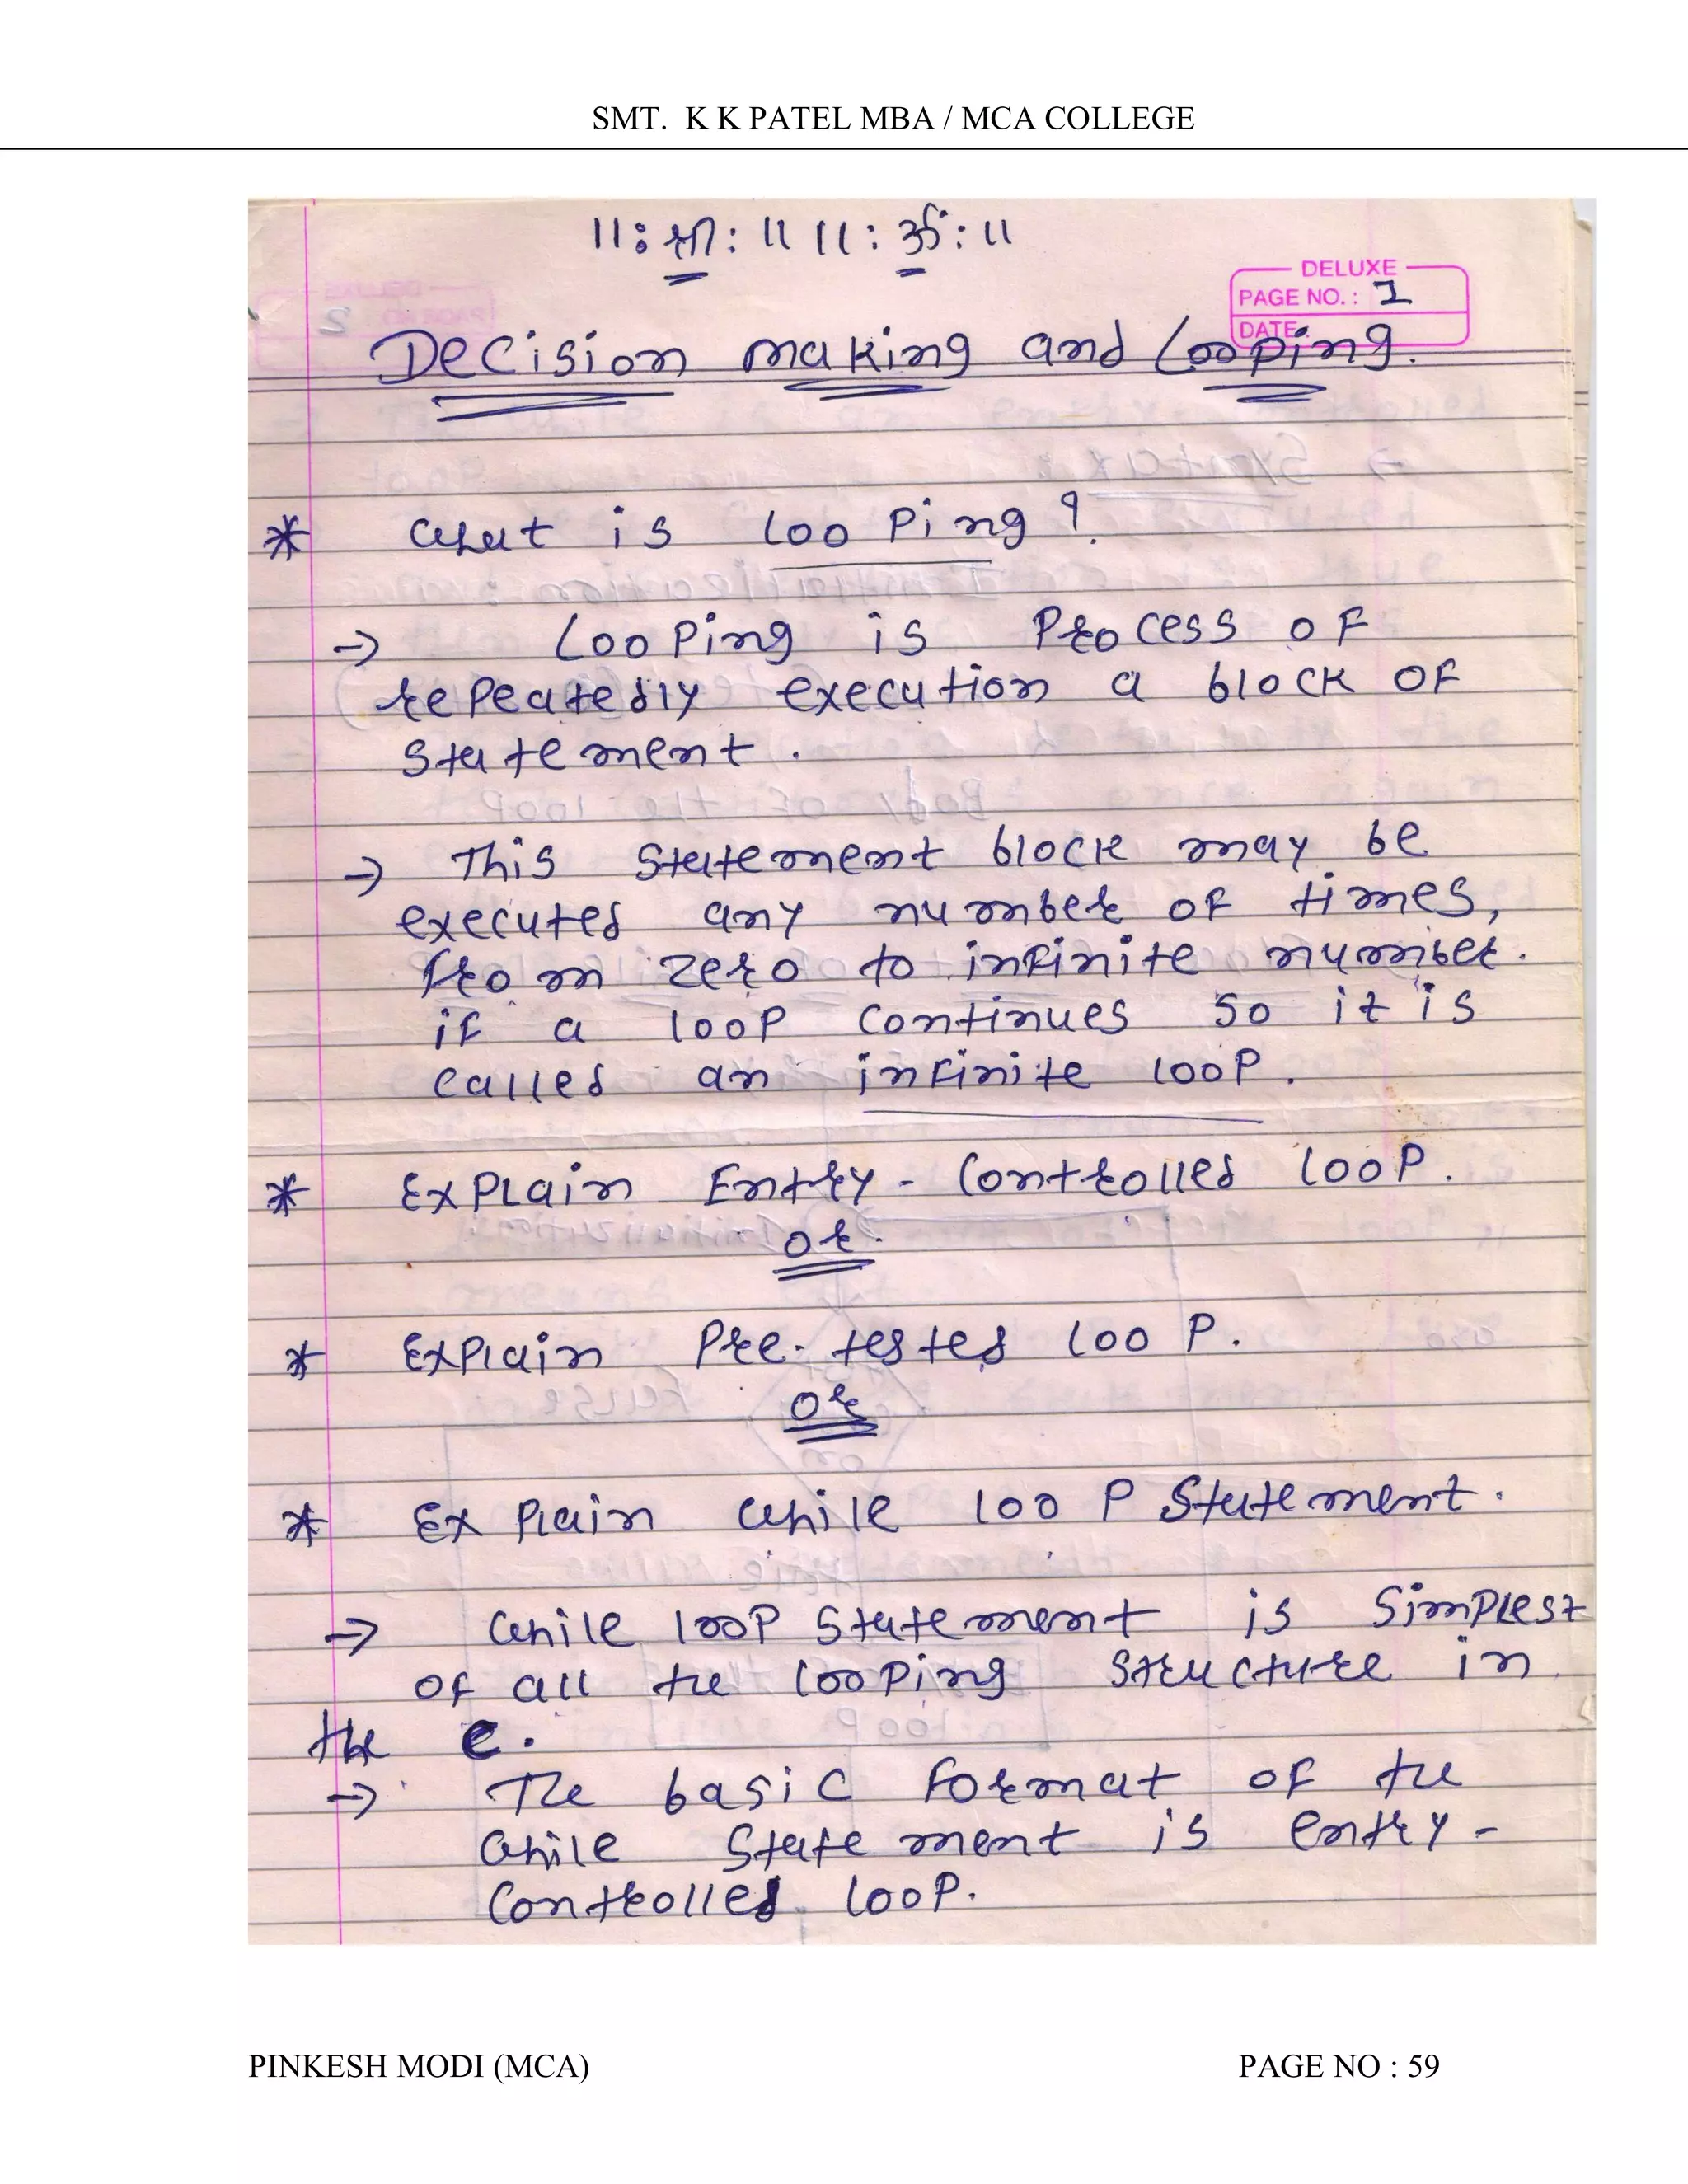 SMT. K K PATEL MBA / MCA COLLEGE
॥ઃ શ્રી ઃ॥ ॥ઃ ૐ ઃ॥
DELUXE
PAGE NO. : 1
DATE
Decision making and Looping.
* what is looping?
→ Looping is Process of
repeatedly execution a block of
statement.
→ This statement block may be
executed any number of times,
from zero to infinite number.
if a loop continues so it is
called an infinite loop.
* Explain Entry-Controlled loop.
or
* Explain Pre-tested loop.
or
* Explain while loop Statement.
→ while loop statement is simplest
of all the looping structure in
the C.
→ The basic format of the
while statement is entry-
controlled loop.
PINKESH MODI (MCA)
PAGE NO : 59